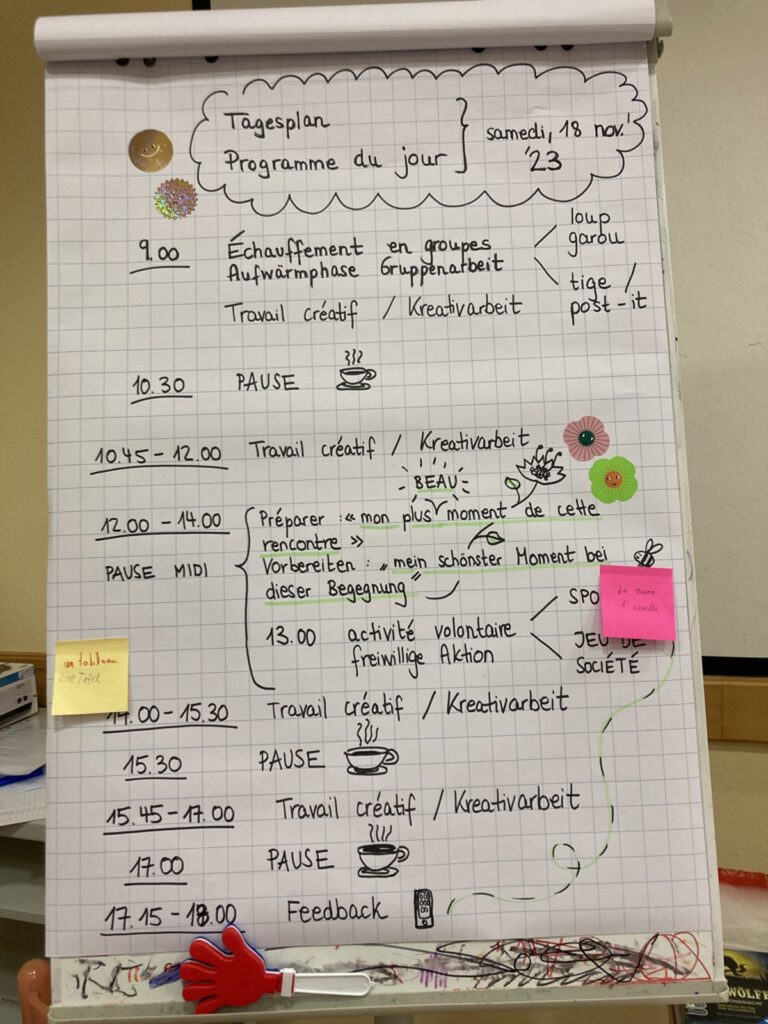 Tagesplan
Programme du jour
samedi, 18 nov.
'23
9.00 Échauffement en groupes
Aufwärmphase Gruppenarbeit
loup
garou
tige /
post-it
Travail créatif / Kreativarbeit
10.30 PAUSE
10.45 - 12.00 Travail créatif / Kreativarbeit
12.00 - 14.00
PAUSE MIDI
BEAU
Préparer : « mon plus moment de cette
rencontre »
Vorbereiten : „mein schönster Moment bei
dieser Begegnung"
13.00 activité volontaire
freiwillige Aktion
SPO
JEU DE
SOCIÉTÉ
die Biene
l'abeille
un tableau
eine Tafel
14.00 - 15.30 Travail créatif / Kreativarbeit
15.30 PAUSE
15.45 - 17.00 Travail créatif / Kreativarbeit
17.00 PAUSE
17.15 - 18.00 Feedback
WÖLFE